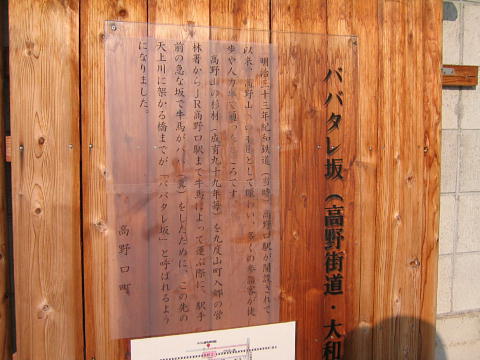 ババタレ坂(高野街道・大和
明治三十三年紀和鉄道(当時)高野口駅が開設されて
以来、高野山への
として賑わい、多くの参詣客が徒
歩や人力車で通った
ころです。
高野山の杉材(成育九十九年毎)を九度山町入郷の営
林署からJR高野口駅まで牛馬によって運ぶ際に、駅手
前の急な坂で牛馬がババ(糞)をしたために、この先の
天上川に架かる橋までが「ババタレ坂」と呼ばれるよう
になりました。
高野口町